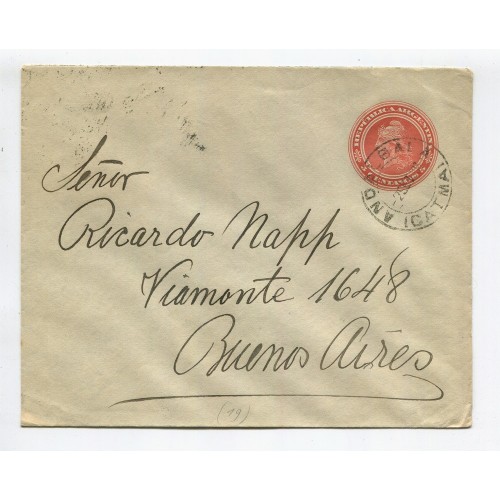 REPUBLICA ARGENTINA
5 CENTAVOS 5
ANDALGALA (CATMA)
Señor
Ricardo Napp
Viamonte 1648
Buenos Aires
(19)